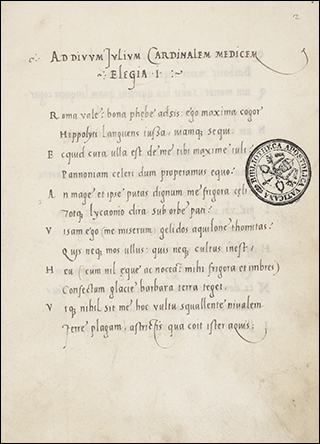 2
AD DIVVM IVLIVM CARDINALEM MEDICEM
ELEGIA I
Roma vale: bona phebe adsis: ego maxima cogor
Hippolyti languens iussa, viamque sequi.
Ecquid cura ulla est de me tibi maxime iuli:
Pannoniam celeri dum properamus equo:
An mage et ipse putas dignum me frigora celi
Totque lycaonio dira sub orbe pati:
Visam ego (me miserum) gelidos aquilone thomitas:
Quis neque mos ullus: quis neque cultus inest:
Heu (cum nil eque ac noceant mihi frigora et imbres)
Consectum glacie barbara terra teget.
Vique nihil sit me hoc vultu squallente nivalem
Ferre plagam, astrictis qua coit ister aquis;
BIBLIOTHECA APOSTOLICA VATICANA